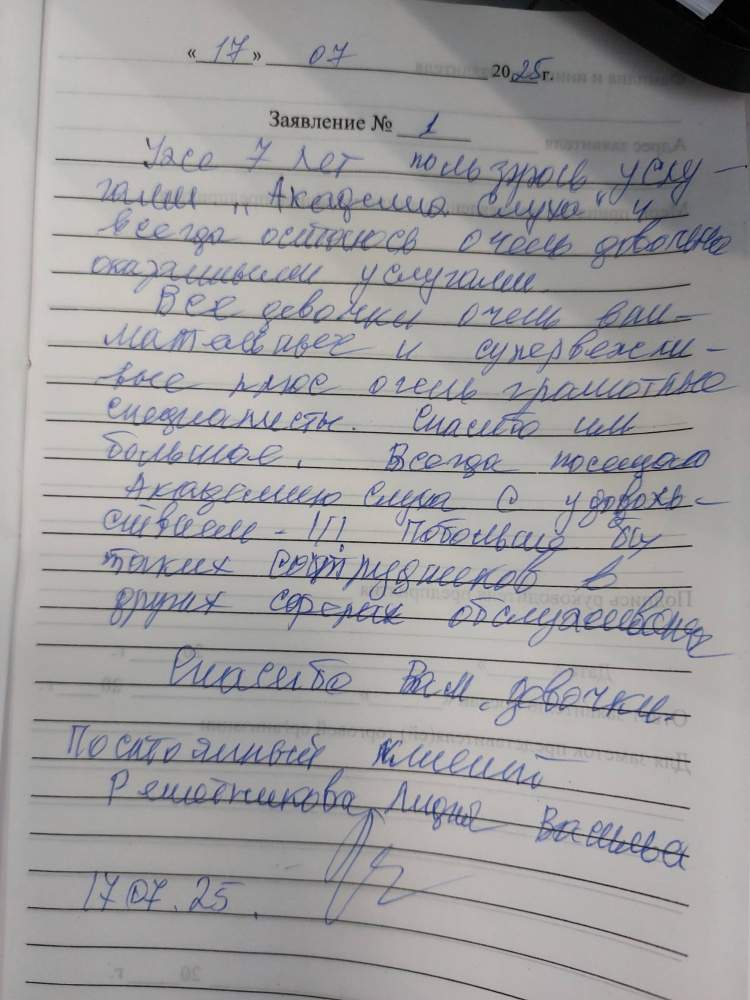 « 17 » 07 2025 г.
Заявление № 1
Уже 7 лет пользуюсь услу-
гами „Академия Слуха" и
всегда остаюсь очень довольна
оказанными услугами.
Все девочки очень вни-
мательные и супервежли-
вые плюс очень грамотные
специалисты. Спасибо им
большое. Всегда посещаю
Академию Слуха с удоволь-
ствием - !!! Побольше бы
таких сотрудников в
других сферах обслуживания
Спасибо Вам, девочки.
Постоянный клиент
Лидия
17 07. 25.